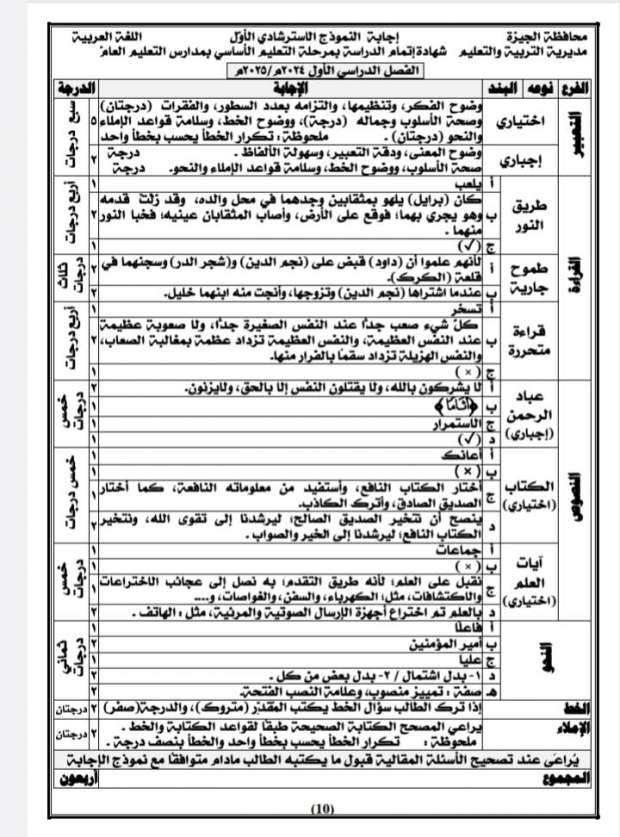 محافظة الجيزة إجابة النموذج الاسترشادي الأول اللغة العربية
مديرية التربية والتعليم شهادة إتمام الدراسة بمرحلة التعليم الأساسي بمدارس التعليم العام
الفصل الدراسي الأول ٢٠٢٤م/٢٠٢٥م
الفرع نوعه البند الإجابة الدرجة
التعبير اختياري وضوح الفكر، وتنظيمها، والتزامه بعدد السطور، والفقرات (درجتان) ٥ سبع درجات
وصحة الأسلوب وجماله (درجة)، ووضوح الخط، وسلامة قواعد الإملاء
والنحو (درجتان) . ملحوظة: تكرار الخطأ يحسب بخطأ واحد
إجباري وضوح المعنى، ودقة التعبير، وسهولة الألفاظ . درجة ٢
صحة الأسلوب، ووضوح الخط، وسلامة قواعد الإملاء والنحو. درجة
القراءة طريق النور أ يلعب ١ أربع درجات
ب كان (برايل) يلهو بمثقابين وجدهما في محل والده، وقد زلت قدمه ٢
وهو يجري بهما؛ فوقع على الأرض، وأصاب المثقابان عينيه؛ فخبا النور
منهما .
ج (✓) ١
طموح جارية أ لأنهم علموا أن (داود) قبض على (نجم الدين) و(شجر الدر) وسجنهما في ٢ ثلاث درجات
قلعة (الكرك).
ب عندما اشتراها (نجم الدين) وتزوجها، وأنجبت منه ابنهما خليل. ٢
قراءة متحررة أ تسخر ١ أربع درجات
ب كل شيء صعب جدًا عند النفس الصغيرة جدًا، ولا صعوبة عظيمة ٢
عند النفس العظيمة، والنفس العظيمة تزداد عظمة بمغالبة الصعاب،
والنفس الهزيلة تزداد سقمًا بالفرار منها.
ج (×) ١
النصوص عباد الرحمن (إجباري) أ لا يشركون بالله، ولا يقتلون النفس إلا بالحق، ولايزنون. ٢ خمس درجات
ب ﴿أَثَامًا﴾ ١
ج الاستمرار ١
د (✓) ١
الكتاب (اختياري) أ أعانك ١ خمس درجات
ب (×) ١
ج أختار الكتاب النافع، وأستفيد من معلوماته النافعة، كما أختار ١
الصديق الصادق، وأترك الكاذب.
د ينصح أن نتخير الصديق الصالح؛ ليرشدنا إلى تقوى الله، ونتخير ٢
الكتاب النافع؛ ليرشدنا إلى الخير والصواب .
آيات العلم (اختياري) أ جماعات ١ خمس درجات
ب (×) ١
ج نقبل على العلم؛ لأنه طريق التقدم؛ به نصل إلى عجائب الاختراعات ١
والاكتشافات، مثل: الكهرباء، والسفن، والغواصات، و....
د بالعلم تم اختراع أجهزة الإرسال الصوتية والمرئية، مثل : الهاتف . ٢
النحو أ فاعلًا ١ ثماني درجات
ب أمير المؤمنين ٢
ج عليا ١
د ١- بدل اشتمال / ٢- بدل بعض من كل . ٢
هـ صفة : تمييز منصوب، وعلامة النصب الفتحة. ٢
الخط إذا ترك الطالب سؤال الخط يكتب المقدر (متروك)، والدرجة(صفر) ٢ درجتان
الإملاء يراعي المصحح الكتابة الصحيحة طبقًا لقواعد الكتابة والخط . ٢ درجتان
ملحوظة : تكرار الخطأ يحسب بخطأ واحد والخطأ بنصف درجة .
يُراعى عند تصحيح الأسئلة المقالية قبول ما يكتبه الطالب مادام متوافقًا مع نموذج الإجابة
المجموع أربعون
(10)